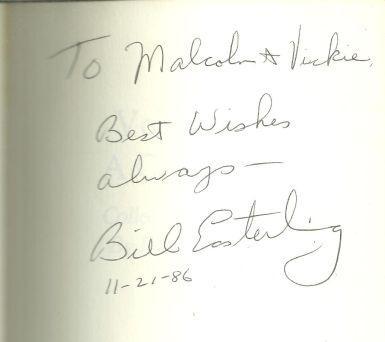 To Malcolm & Vickie,
Best Wishes
always—
Bill Easterling
11-21-86